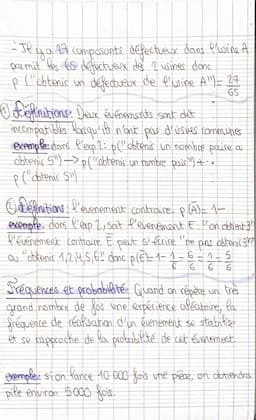 - Il y a 27 composants défectueux dans l'usine A
parmit les 65 défectueux des 2 usines donc
p ("obtenir un défectueux de l'usine A") = 27/65
① Définitions: Deux événements sont dit
incompatibles lorsqu'ils n'ont pas d'issues communes
exemple: dans l'exp 2: p("obtenir un nombre paire ou
obtenir 5") → p("obtenir un nombre pair") +
p ("obtenir 5")
② Définitions: l'évenement contraire: p(Ā) = 1-
exemple: dans l'exp 2, soit l'évenement E: "on obtient 3"
l'évenement contraire E peut s'écrire "ne pas obtenir 3"
ou "obtenir 1,2,4,5,6" donc p(E) = 1 - 1/6 = 6/6 - 1/6 = 5/6
Fréquences et probabilité: Quand on répète un très
grand nombre de fois une expérience aléatoire, la
fréquence de réalisation d'un évenement se stabilise
et se rapproche de la probabilité de cet évenement.
exemple: si on lance 10 000 fois une pièce, on obtiendra
pile environ 5000 fois.